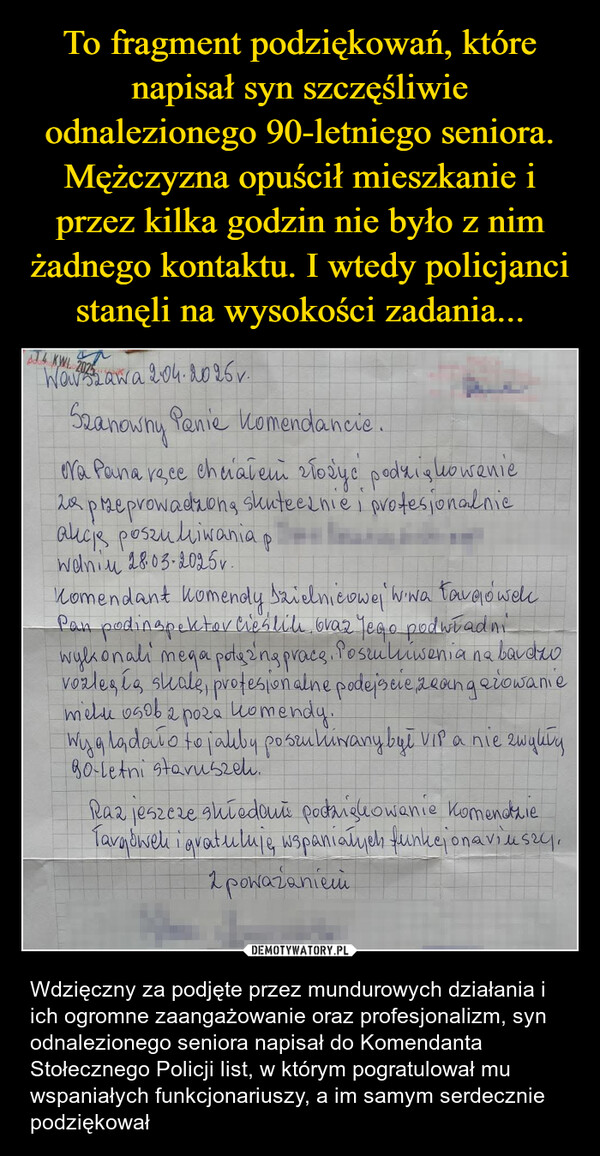 To fragment podziękowań, które
napisał syn szczęśliwie
odnalezionego 90-letniego seniora.
Mężczyzna opuścił mieszkanie i
przez kilka godzin nie było z nim
żadnego kontaktu. I wtedy policjanci
stanęli na wysokości zadania...
KWI. 2025
Warszawa 2.04.2025r.
Szanowny Panie Komendancie.
Na Pana ręce chciałem złożyć podziękowanie
za przeprowadzoną skutecznie i profesjonalnie
akcję poszukiwania p
w dniu 28.03.2025r.
Komendant Komendy Dzielnicowej W-wa Targówek
Pan podinspektor Cieślik, oraz Jego podwładni
wykonali mega potężną pracę. Poszukiwania na bardzo
rozległą skalę, profesjonalne podejście, zaangażowanie
wielu osób z poza Komendy.
Wyglądało to jakby poszukiwany był VIP a nie zwykły
90-letni staruszek.
Raz jeszcze składam podziękowanie Komendzie
Targówek i gratuluję wspaniałych funkcjonariuszy.
Z poważaniem
DEMOTYWATORY.PL
Wdzięczny za podjęte przez mundurowych działania i
ich ogromne zaangażowanie oraz profesjonalizm, syn
odnalezionego seniora napisał do Komendanta
Stołecznego Policji list, w którym pogratulował mu
wspaniałych funkcjonariuszy, a im samym serdecznie
podziękował